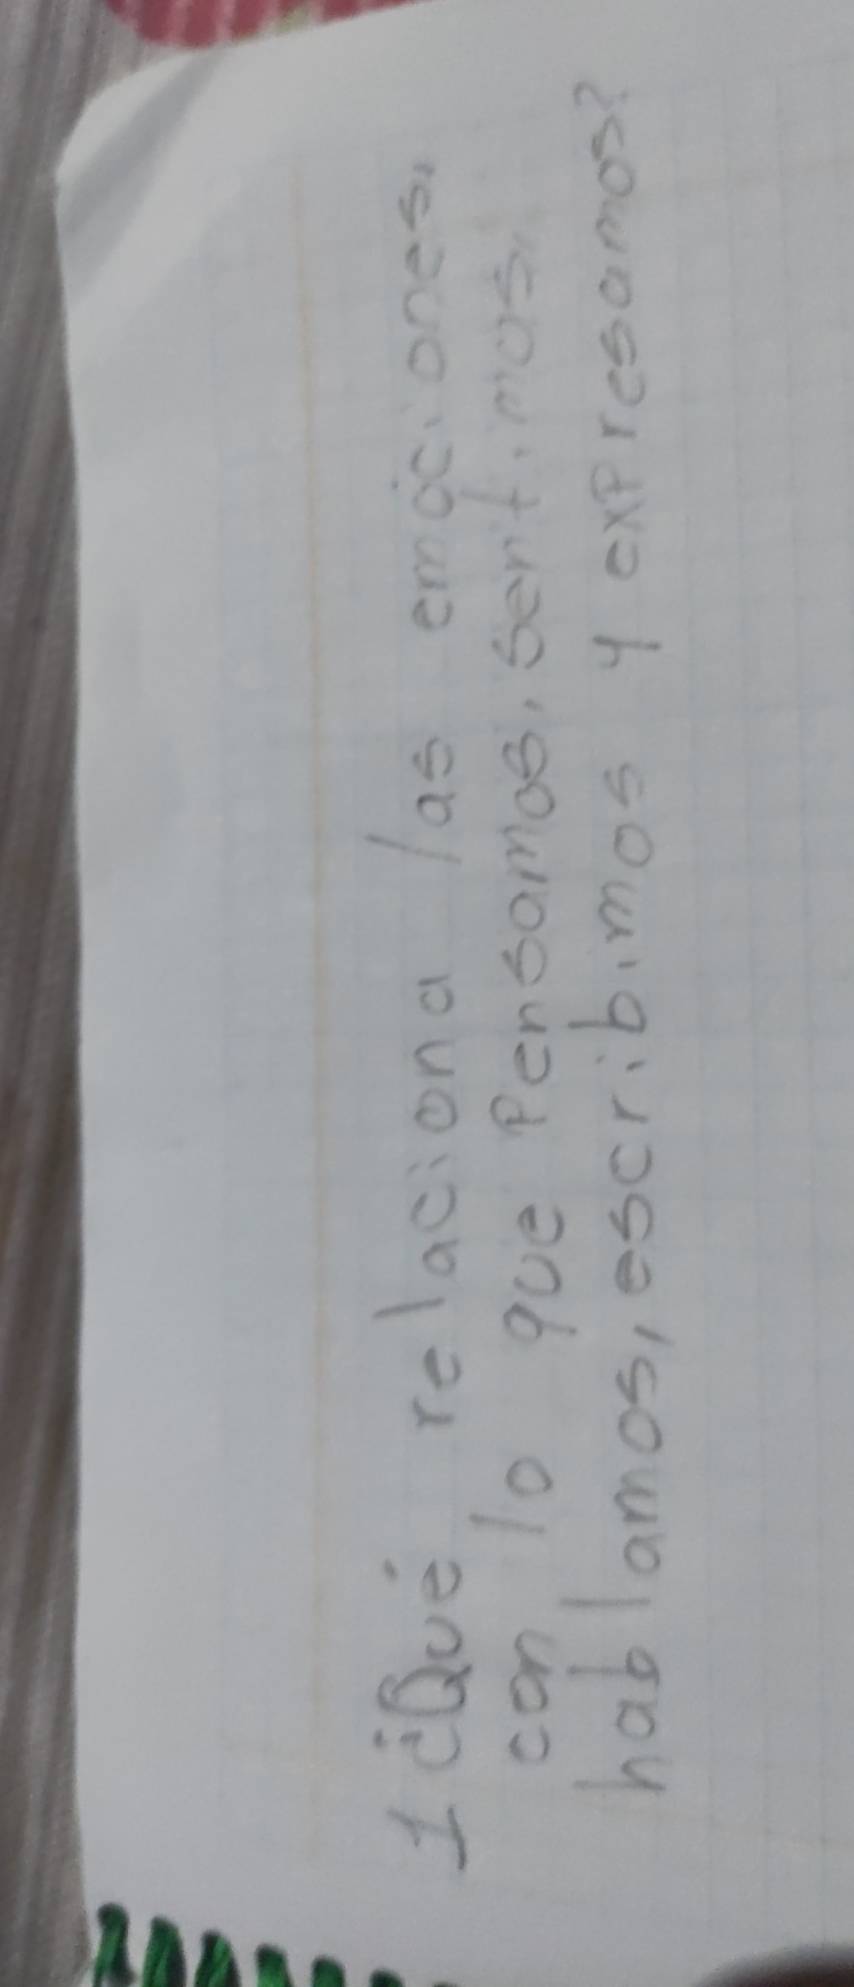 1 ¿Qué relaciona las emociones,
con lo que Pensamos, sentimos,
hablamos, escribimos y expresamos?